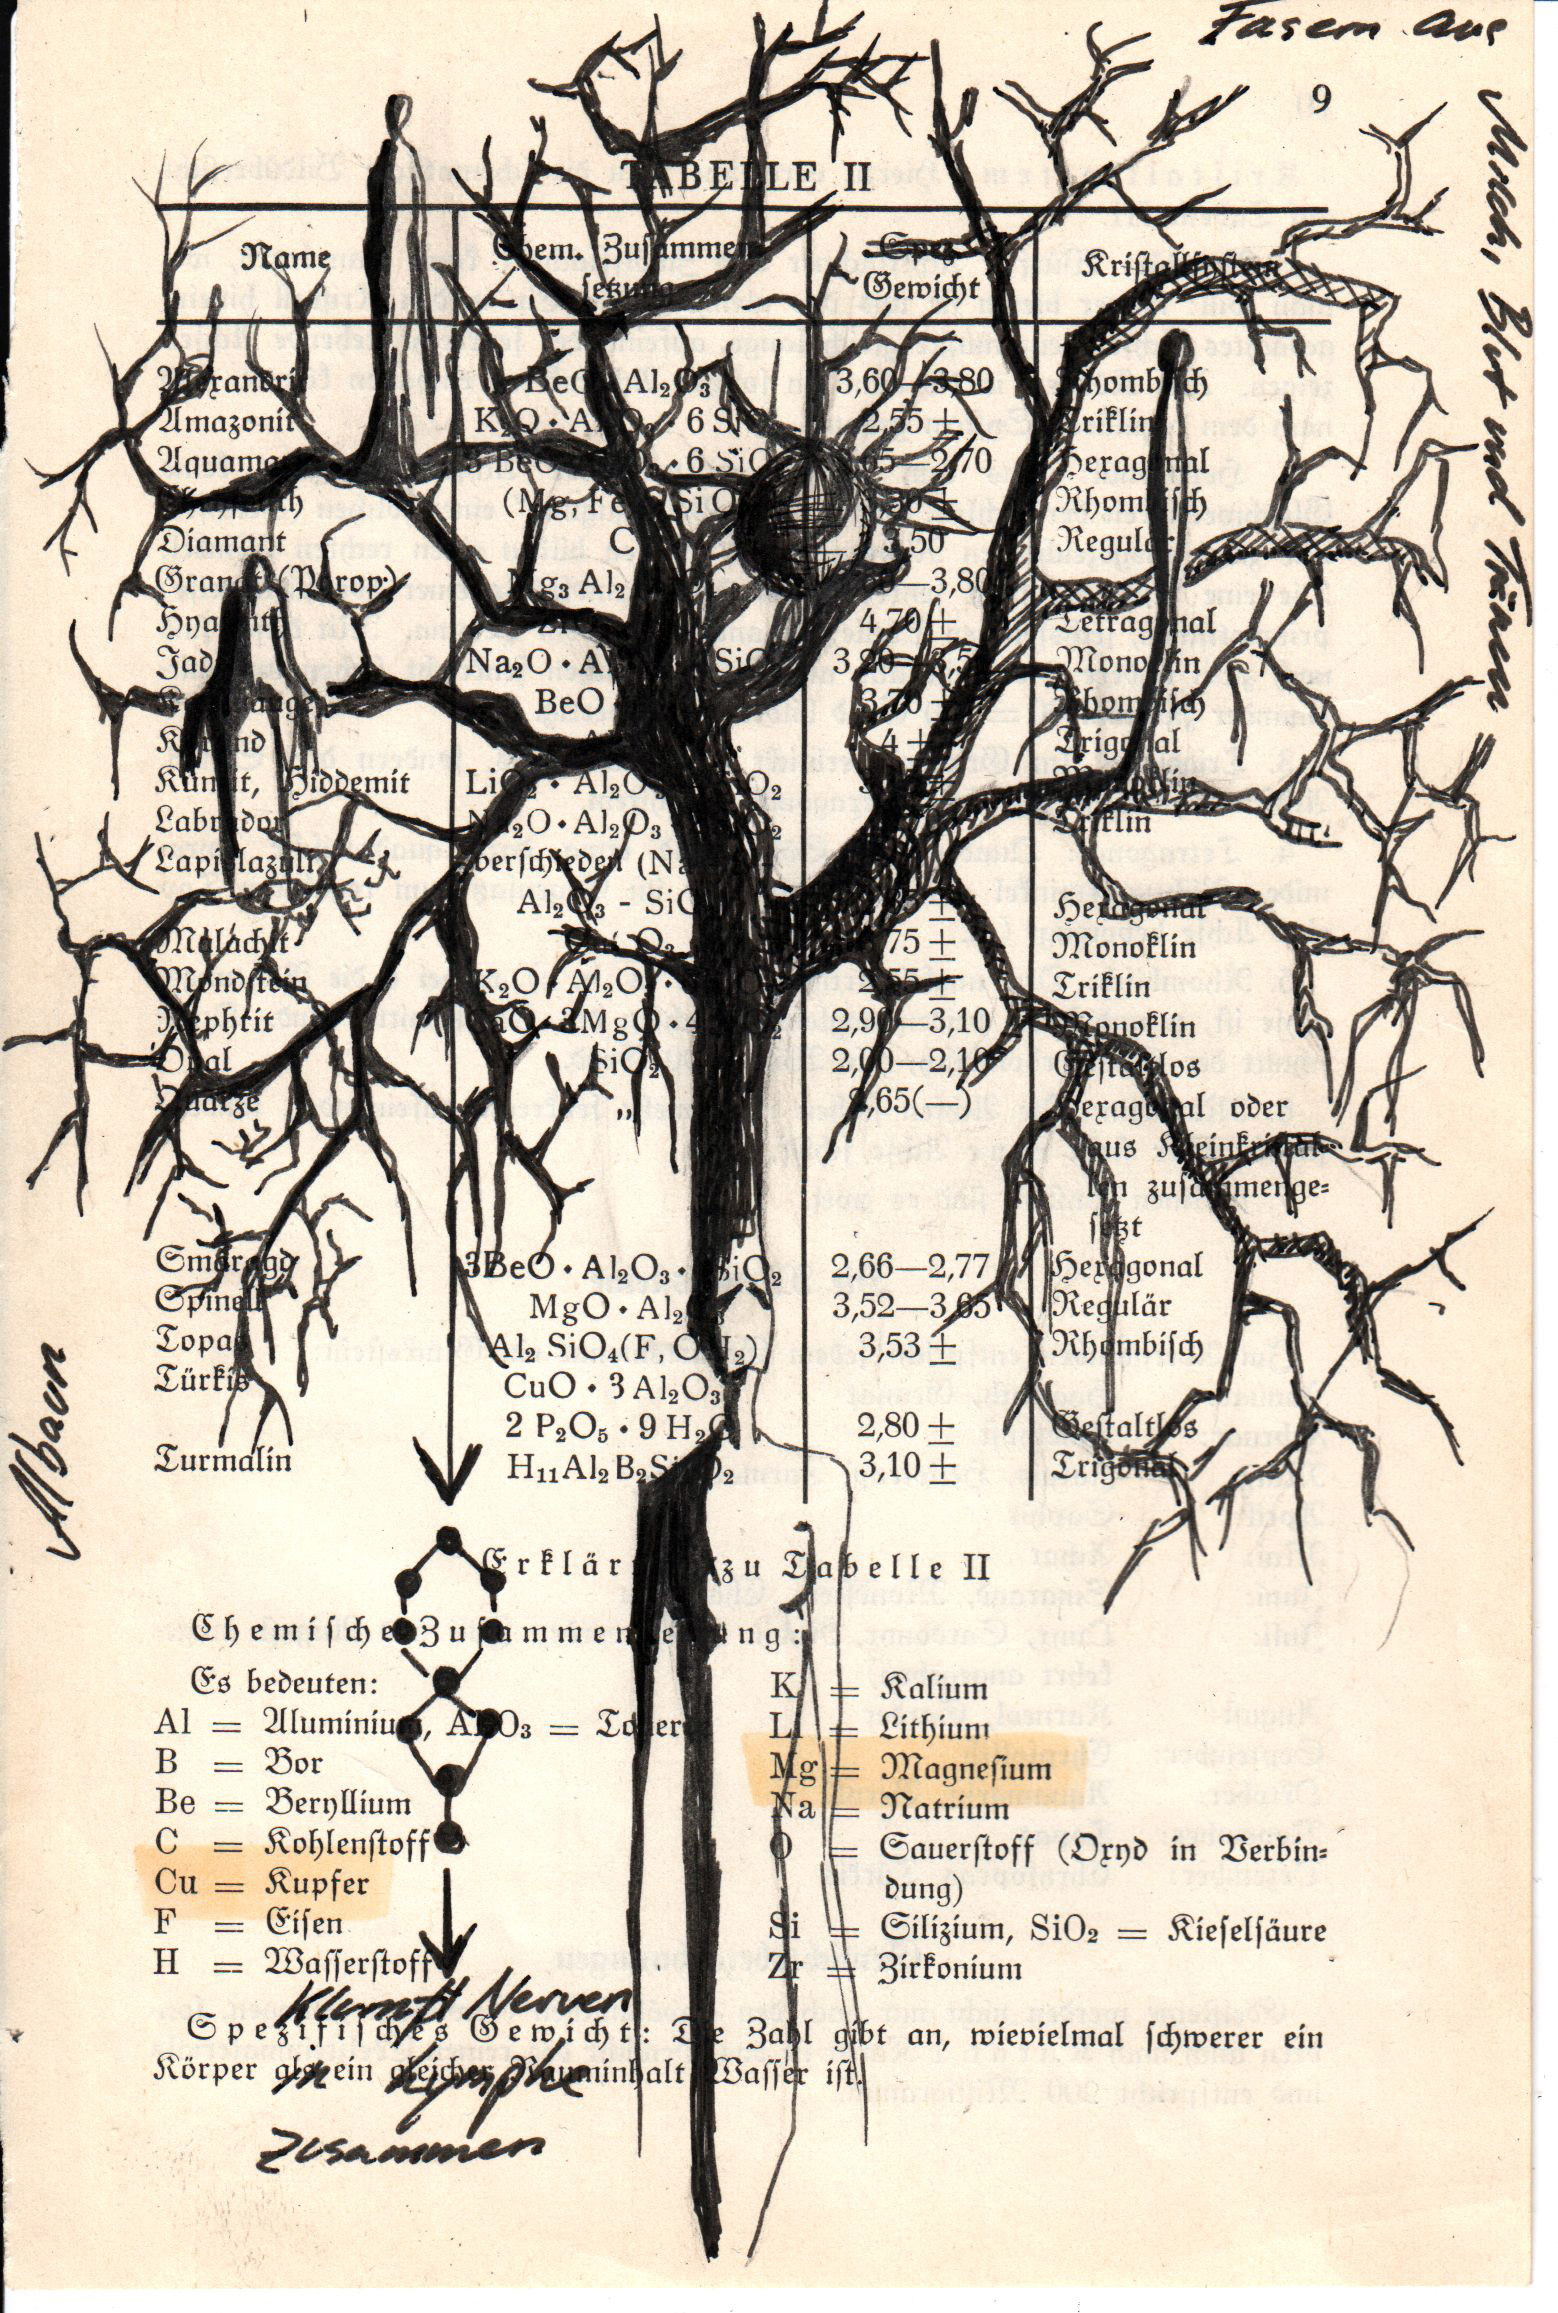 Fasern aus
9
Milch, Blut und Tränen
TABELLE II
Name Chem. Zusammen- Spez. Kristallsystem
setzung Gewicht
Alexandrit BeO · Al₂O₃ 3,60—3,80 Rhombisch
Amazonit K₂O · Al₂O₃ · 6 SiO₂ 2,55 ± Triklin
Aquamarin 3 BeO 6 SiO 2,70 Hexagonal
Chrysolith (Mg, Fe SiO Rhombisch
Diamant C 3,50 Regulär
Granat (Pyrop) Mg₃ Al₂ —3,80
Hyazinth 4,70 ± Tetragonal
Jade Na₂O · Al SiO 3,20—3,5 Monoklin
BeO 3,70 ± Rhombisch
Korund 4 ± Trigonal
Kunzit, Hiddemit LiO₂ · Al₂O₃ SiO₂ Monoklin
Labrador Na₂O · Al₂O₃ Triklin
Lapislazuli verschieden (Na
Al₂O₃ - SiO Hexagonal
Malachit 75 ± Monoklin
Mondstein K₂O · Al₂O₃ · 2,55 ± Triklin
Nephrit CaO · 3MgO · 4 2,90—3,10 Monoklin
Opal SiO₂ 2,00—2,10 Gestaltlos
Quarze „ 2,65(—) Hexagonal oder
aus Kleinkristal-
len zusammenge-
setzt
Smaragd 3BeO · Al₂O₃ · SiO₂ 2,66—2,77 Hexagonal
Spinell MgO · Al₂O₃ 3,52—3,65 Regulär
Topas Al₂ SiO₄(F, OH₂) 3,53 ± Rhombisch
Türkis CuO · 3 Al₂O₃
2 P₂O₅ · 9 H₂O 2,80 ± Gestaltlos
Turmalin H₁₁Al₂B₂Si O₂ 3,10 ± Trigonal
Albaum
Erklärung zu Tabelle II
Chemische Zusammensetzung:
Es bedeuten:
Al = Aluminium, Al₂O₃ = Tonerde
B = Bor
Be = Beryllium
C = Kohlenstoff
Cu = Kupfer
F = Eisen
H = Wasserstoff
K = Kalium
Li = Lithium
Mg = Magnesium
Na = Natrium
O = Sauerstoff (Oxyd in Verbin-
dung)
Si = Silizium, SiO₂ = Kieselsäure
Zr = Zirkonium
Klumpft Nerven
Spezifisches Gewicht: Die Zahl gibt an, wievielmal schwerer ein
Körper als ein gleicher Rauminhalt Wasser ist.
in Lymphe
zusammen